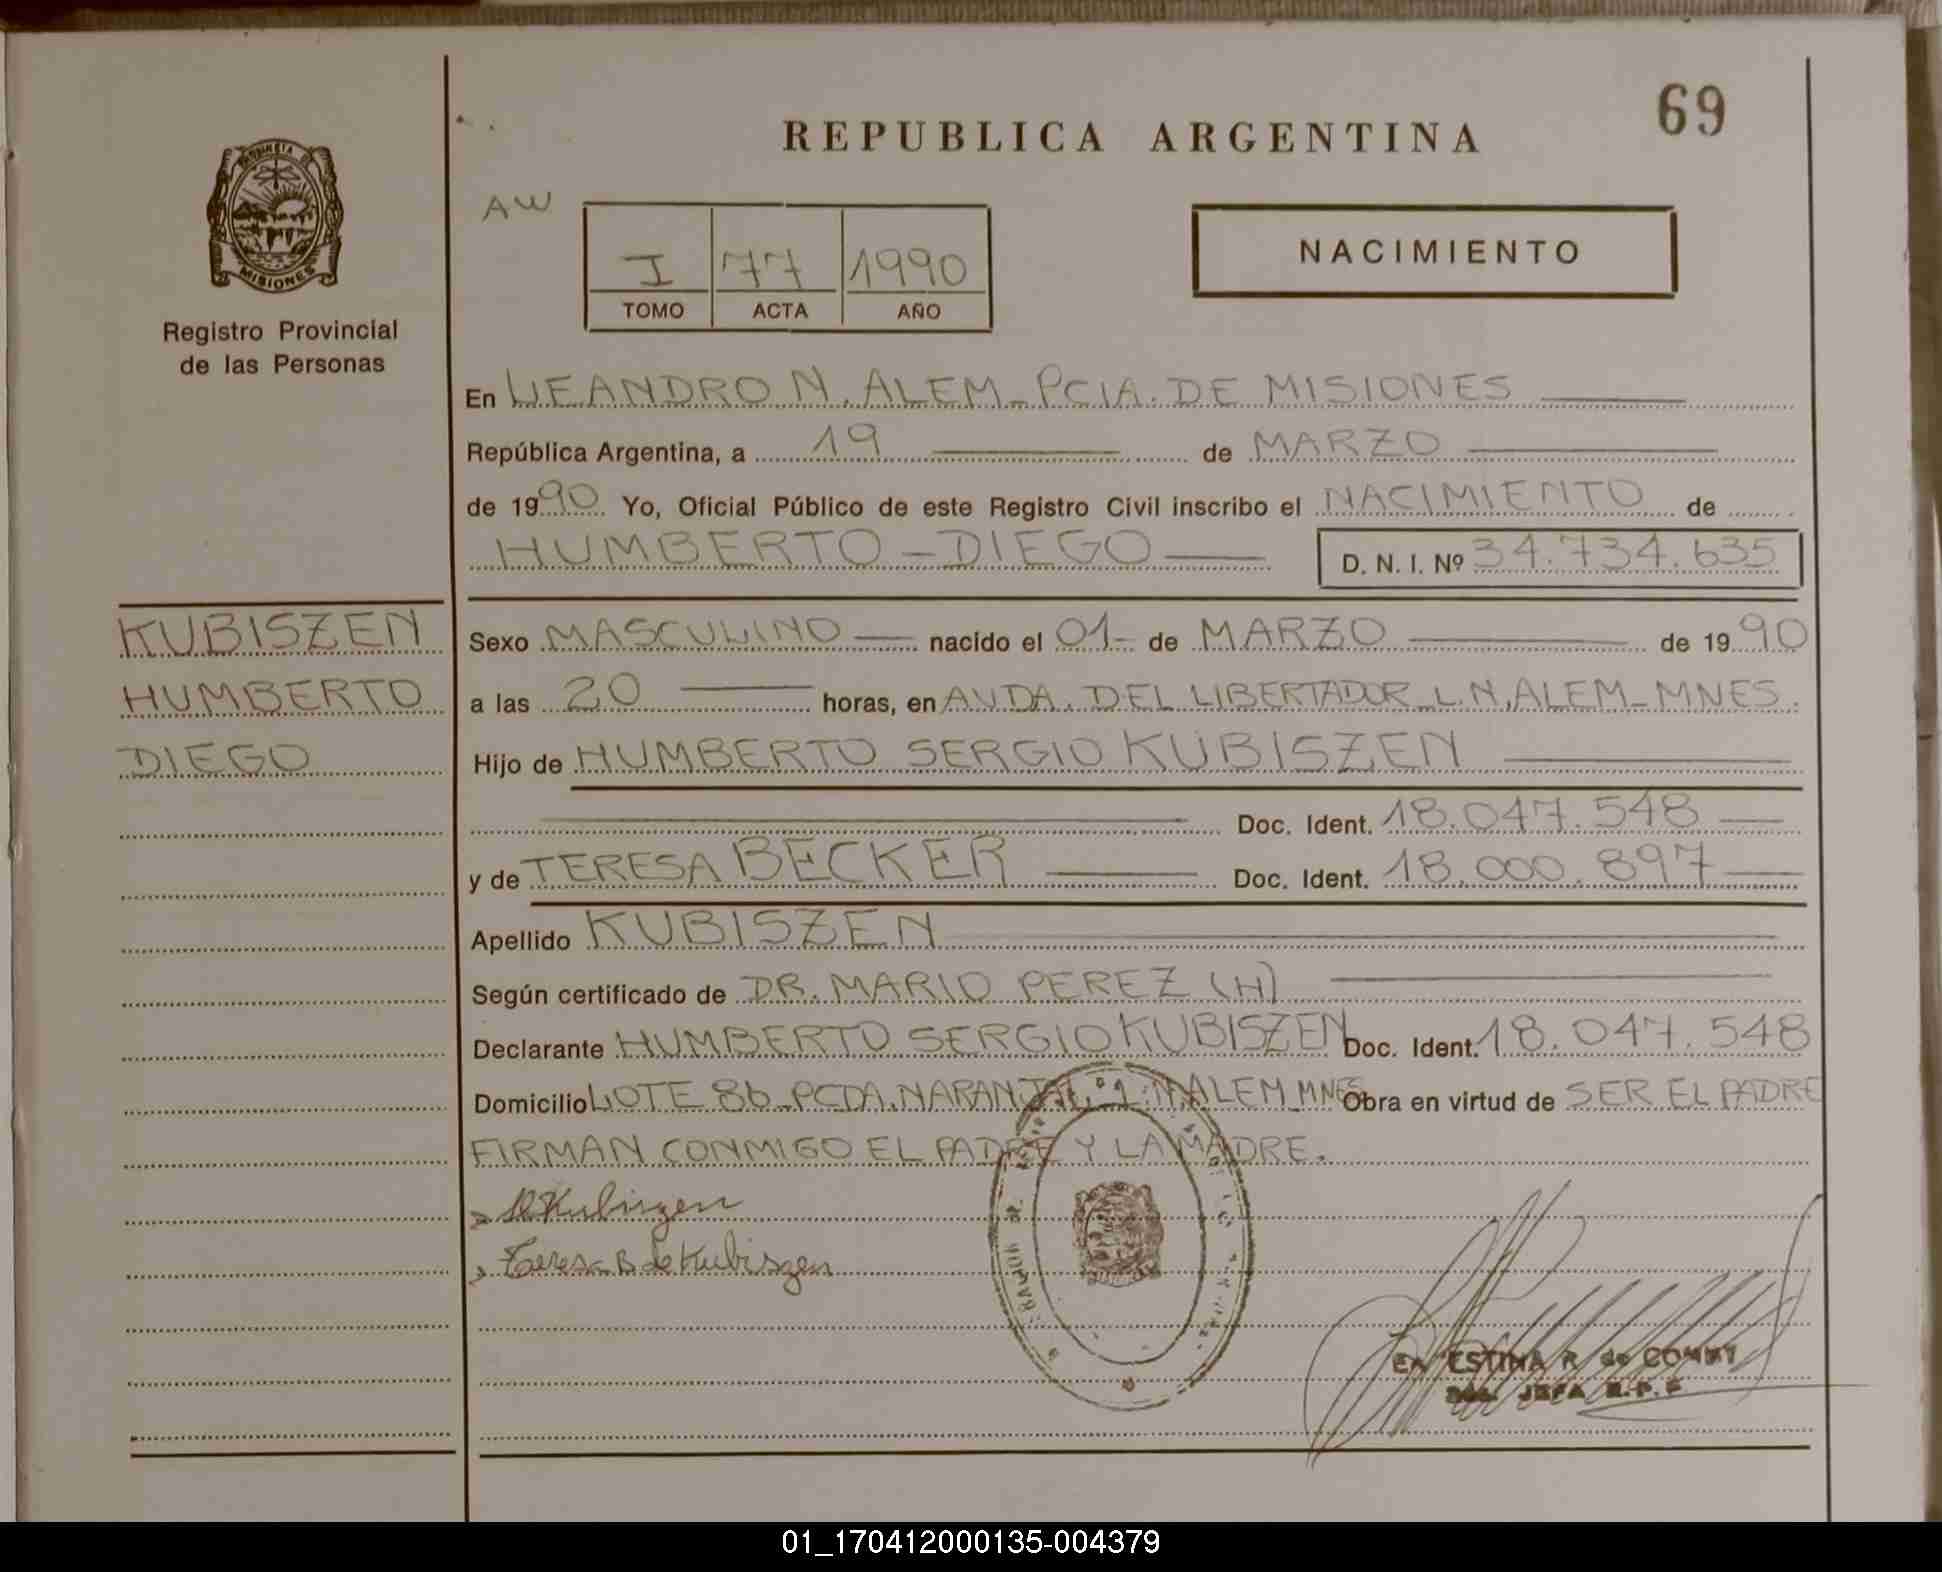 REPUBLICA ARGENTINA
69
PROVINCIA D
MISIONES
Registro Provincial
de las Personas
AW
I 77 1990
TOMO ACTA AÑO
NACIMIENTO
En LEANDRO N. ALEM - PCIA. DE MISIONES
República Argentina, a 19 de MARZO
de 1990 Yo, Oficial Público de este Registro Civil inscribo el NACIMIENTO de
HUMBERTO - DIEGO D. N. I. Nº 34.734.635
KUBISZEN
HUMBERTO
DIEGO
Sexo MASCULINO nacido el 01- de MARZO de 1990
a las 20 horas, en AVDA. DEL LIBERTADOR - L.N. ALEM - MNES.
Hijo de HUMBERTO SERGIO KUBISZEN
Doc. Ident. 18.047.548
y de TERESA BECKER Doc. Ident. 18.000.897
Apellido KUBISZEN
Según certificado de DR. MARIO PEREZ (H)
Declarante HUMBERTO SERGIO KUBISZEN Doc. Ident. 18.047.548
Domicilio LOTE 86 - PCDA. NARANJAL, L.N. ALEM - MNES. Obra en virtud de SER EL PADRE
FIRMAN CONMIGO EL PADRE Y LA MADRE.
Kubiszen
Teresa B de Kubiszen
R de
JEFA R.P.P
01_170412000135-004379